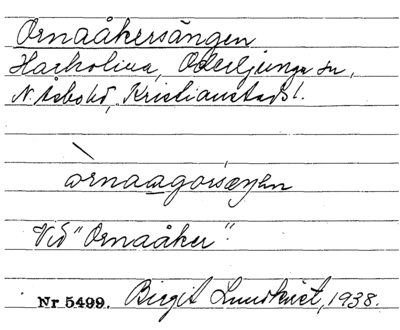 Ornaåkersängen
Harkoliva, Oderljunga sn,
N. Åsbo hd, Kristianstads l.
òrnaagorsæŋən
Vid "Ornaåker".
Nr 5499. Birgit Lundkvist, 1938.